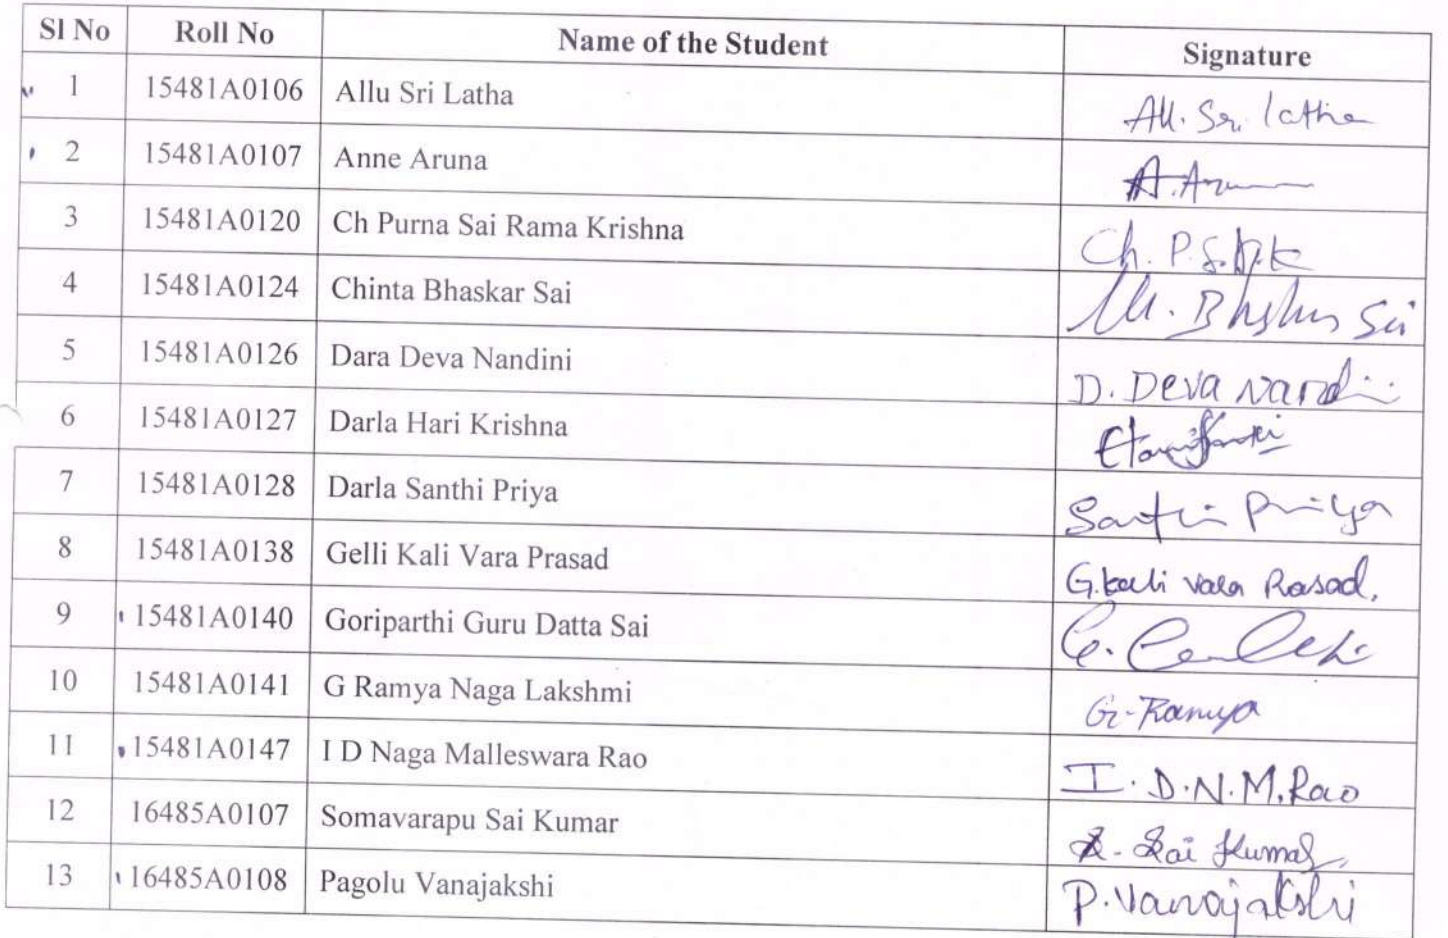 Sl No Roll No Name of the Student Signature
1 15481A0106 Allu Sri Latha All. Sri latha
2 15481A0107 Anne Aruna A. Aruna
3 15481A0120 Ch Purna Sai Rama Krishna Ch. P.S.R.K
4 15481A0124 Chinta Bhaskar Sai Ch. Sai
5 15481A0126 Dara Deva Nandini D. Deva Nandini
6 15481A0127 Darla Hari Krishna
7 15481A0128 Darla Santhi Priya Santhi Priya
8 15481A0138 Gelli Kali Vara Prasad G. kali vara Prasad,
9 15481A0140 Goriparthi Guru Datta Sai G.
10 15481A0141 G Ramya Naga Lakshmi G. Ramya
11 15481A0147 I D Naga Malleswara Rao I. D.N.M.Rao
12 16485A0107 Somavarapu Sai Kumar S. Sai Kumar
13 16485A0108 Pagolu Vanajakshi P. Vanajakshi